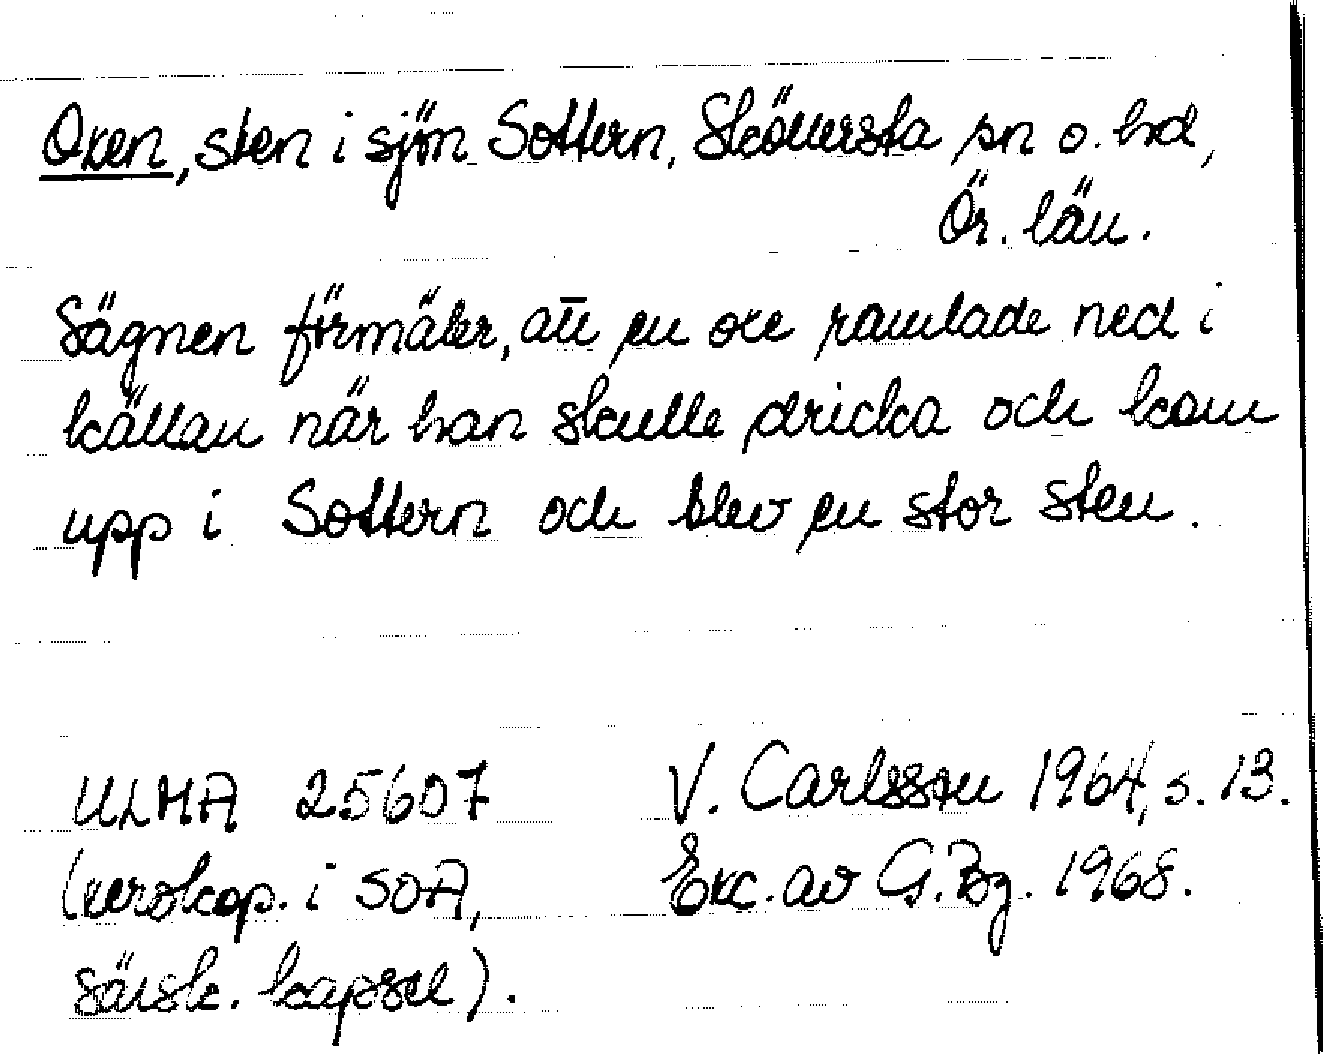 Oxen, sten i sjön Sottern, Sköllersta sn o. hd,
Ör. län.
Sägnen förmäler, att en oxe ramlade ned i
källan när han skulle dricka och kom
upp i Sottern och blev en stor sten.
ULMA 25607 V. Carlsson 1964, s. 13.
(xerokop. i SOA, Exc. av G. Bg. 1968.
särsk. kapsel).